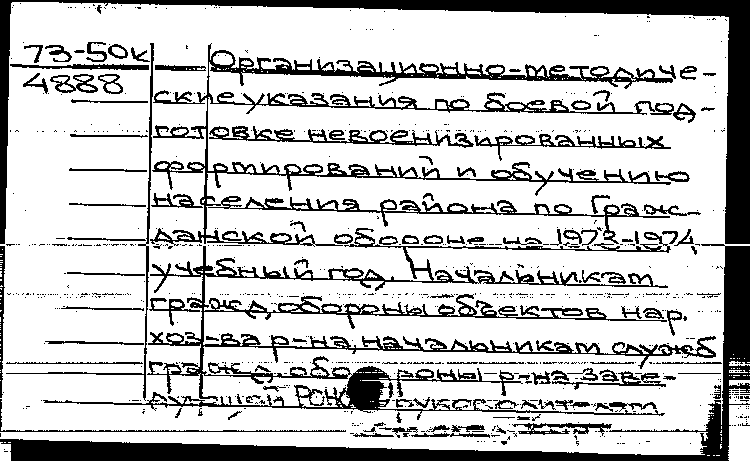 73-50к Организационно-методиче-
4888 ские указания по боевой под-
готовке невоенизированных
формирований и обучению
населения района по Граж-
данской обороне на 1973-1974
учебный год. Начальникам
гражд. обороны объектов нар.
хоз-ва р-на, начальникам служб
гражд. обороны р-на, заве-
дующей РОНО, руководителям